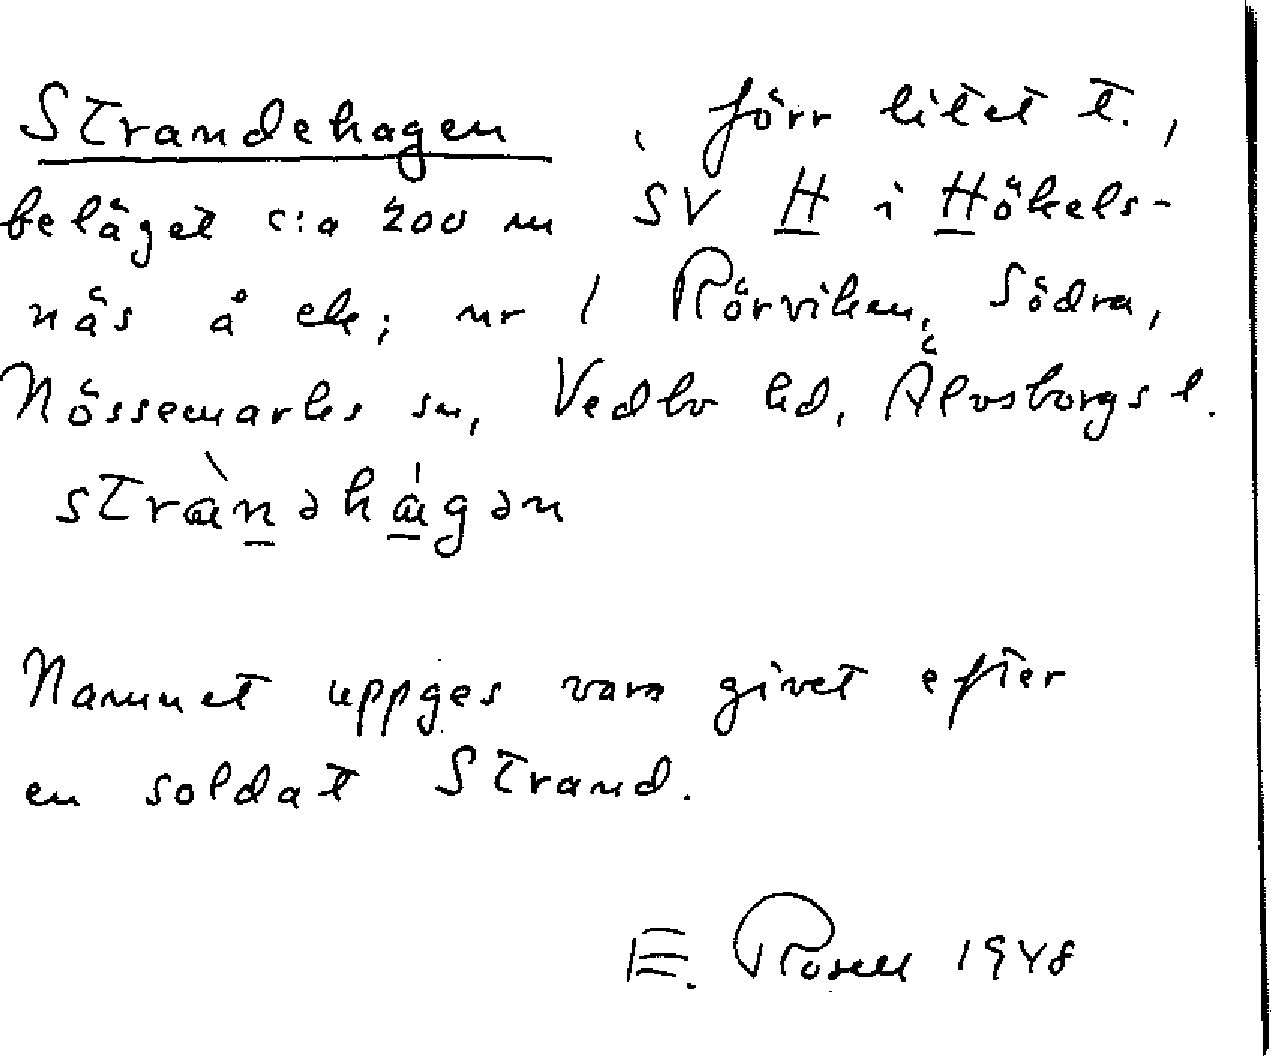 Strandehagen, förr litet t.,
beläget c:a 200 m SV H i Hökels-
näs å ek; nr 1 Rörviken, Södra,
Nössemarks sn, Vedbo hd, Älvsborgs l.
strànəhágən
Namnet uppges vara givet efter
en soldat Strand.
E. Rosell 1948